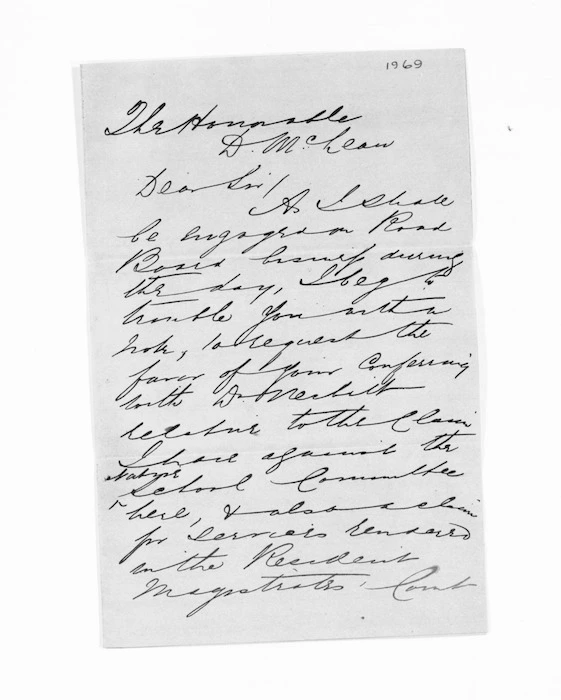 1969
The Honorable
D. McLean
Dear Sir/
As I shall
be engaged on Road
Board business during
the day, I beg to
trouble you with a
note, to request the
favor of your conferring
with Dr Nesbitt
relative to the claim
I have against the
Native
School Committee
here, & also a claim
for services rendered
in the Resident
Magistrates' Court